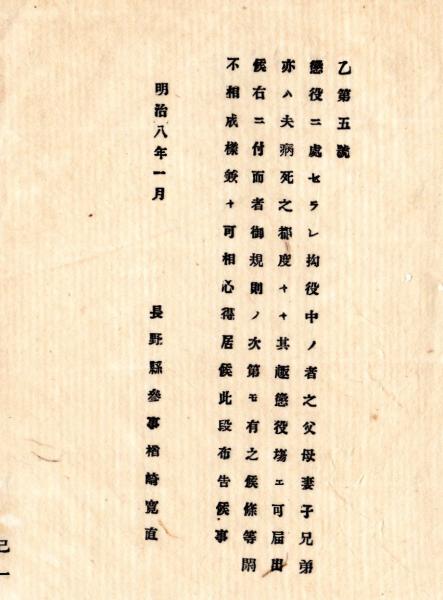 乙第五號
懲役ニ處セラレ拘役中ノ者之父母妻子兄弟
亦ハ夫病死之都度々々其趣懲役塲エ可届出
候右ニ付而者御規則ノ次第モ有之候條等閑
不相成樣銘々可相心得居候此段布告候事
明治八年一月
長野縣參事楢崎寛直